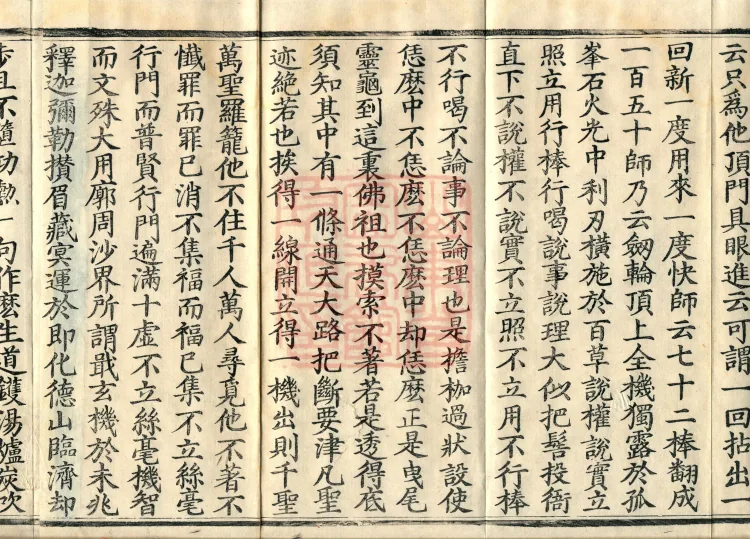 云只爲他頂門具眼進云可謂一回拈出一
回新一度用來一度快師云七十二棒翻成
一百五十師乃云劒輪頂上全機獨露於孤
峯石火光中利刃橫施於百草說權說實立
照立用行棒行喝說事說理大似把髻投衙
直下不說權不說實不立照不立用不行棒
不行喝不論事不論理也是擔枷過狀設使
恁麽中不恁麽不恁麽中却恁麽正是曳尾
靈龜到這裏佛祖也摸索不著若是透得底
須知其中有一條通天大路把斷要津凡聖
迹絕若也挨得一線開立得一機出則千聖
萬聖羅籠他不住千人萬人尋覓他不著不
懺罪而罪已消不集福而福已集不立絲毫
行門而普賢行門遍滿十虛不立絲毫機智
而文殊大用廓周沙界所謂戢玄機於未兆
釋迦彌勒攢眉藏冥運於即化德山臨濟却
步且不隨功勲一句作麽生道鑊湯爐炭吹